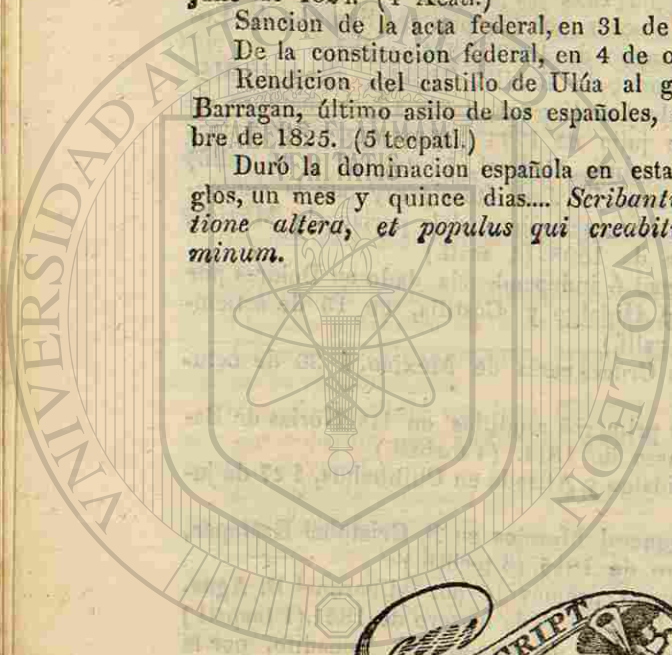 de 1824. (
Sancion de la acta federal, en 31 de
De la constitucion federal, en 4 de o
Rendicion del castillo de Ulúa al g
Barragan, último asilo de los españoles,
bre de 1825. (5 tecpatl.)
Duró la dominacion española en esta
glos, un mes y quince dias.... Scribant
tione altera, et populus qui creabit
minum.
UNIVERSIDAD AUTONOMA DE NUEVO LEON
SCRIPT